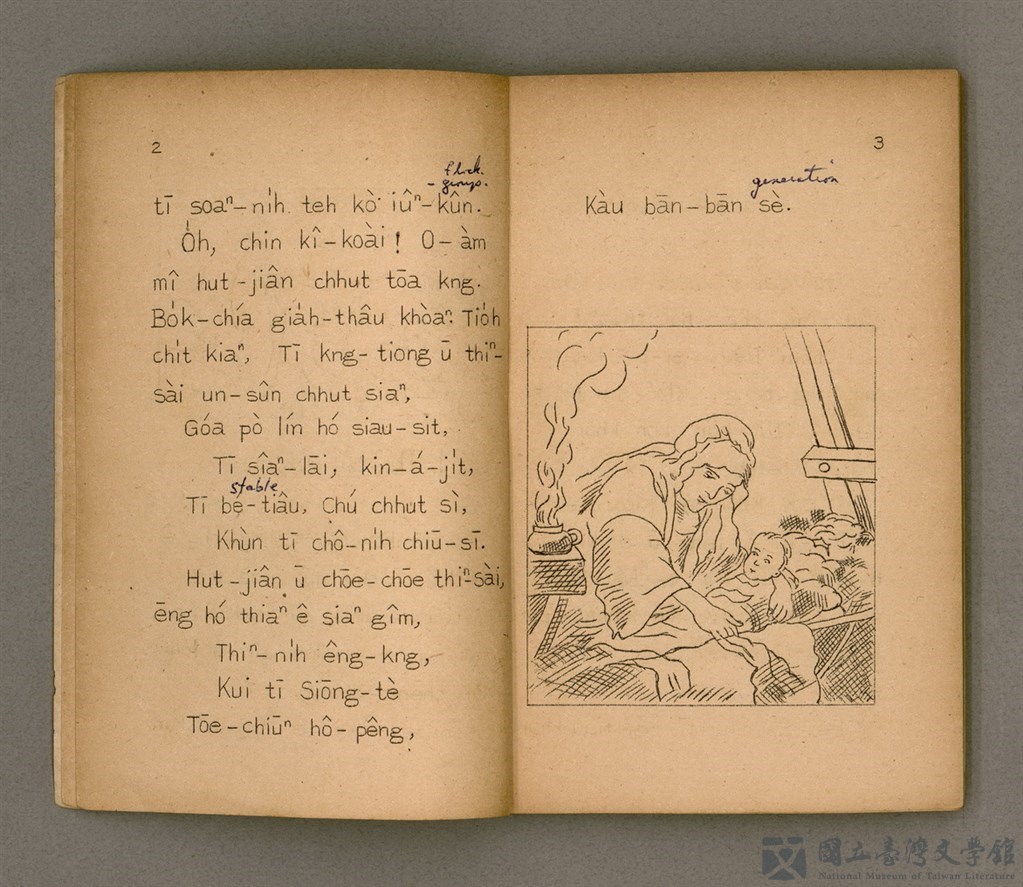 2
flock.
- group.
tī soaⁿ-ni̍h teh kò͘ iûⁿ-kûn.
Óh, chin kî-koài! O͘-àm
mî hut-jiân chhut tōa kng.
Bo̍k-chía gia̍h-thâu khòaⁿ. Tio̍h
chi̍t kiaⁿ, Tī kng-tiong ū thiⁿ-
sài un-sûn chhut siaⁿ,
Góa pò lín hó siau-sit,
Tī siâⁿ-lāi, kin-á-ji̍t,
stable
Tī bé-tiâu, Chú chhut sì,
Khùn tī chô-ni̍h chiū-sī.
Hut-jiân ū chōe-chōe thiⁿ-sài,
ēng hó thiaⁿ ê siaⁿ gîm,
Thiⁿ-ni̍h êng-kng,
Kui tī Siōng-tè
Tōe-chiūⁿ hô-pêng,
3
generation
Kàu bān-bān sè.
國立臺灣文學館
National Museum of Taiwan Literature